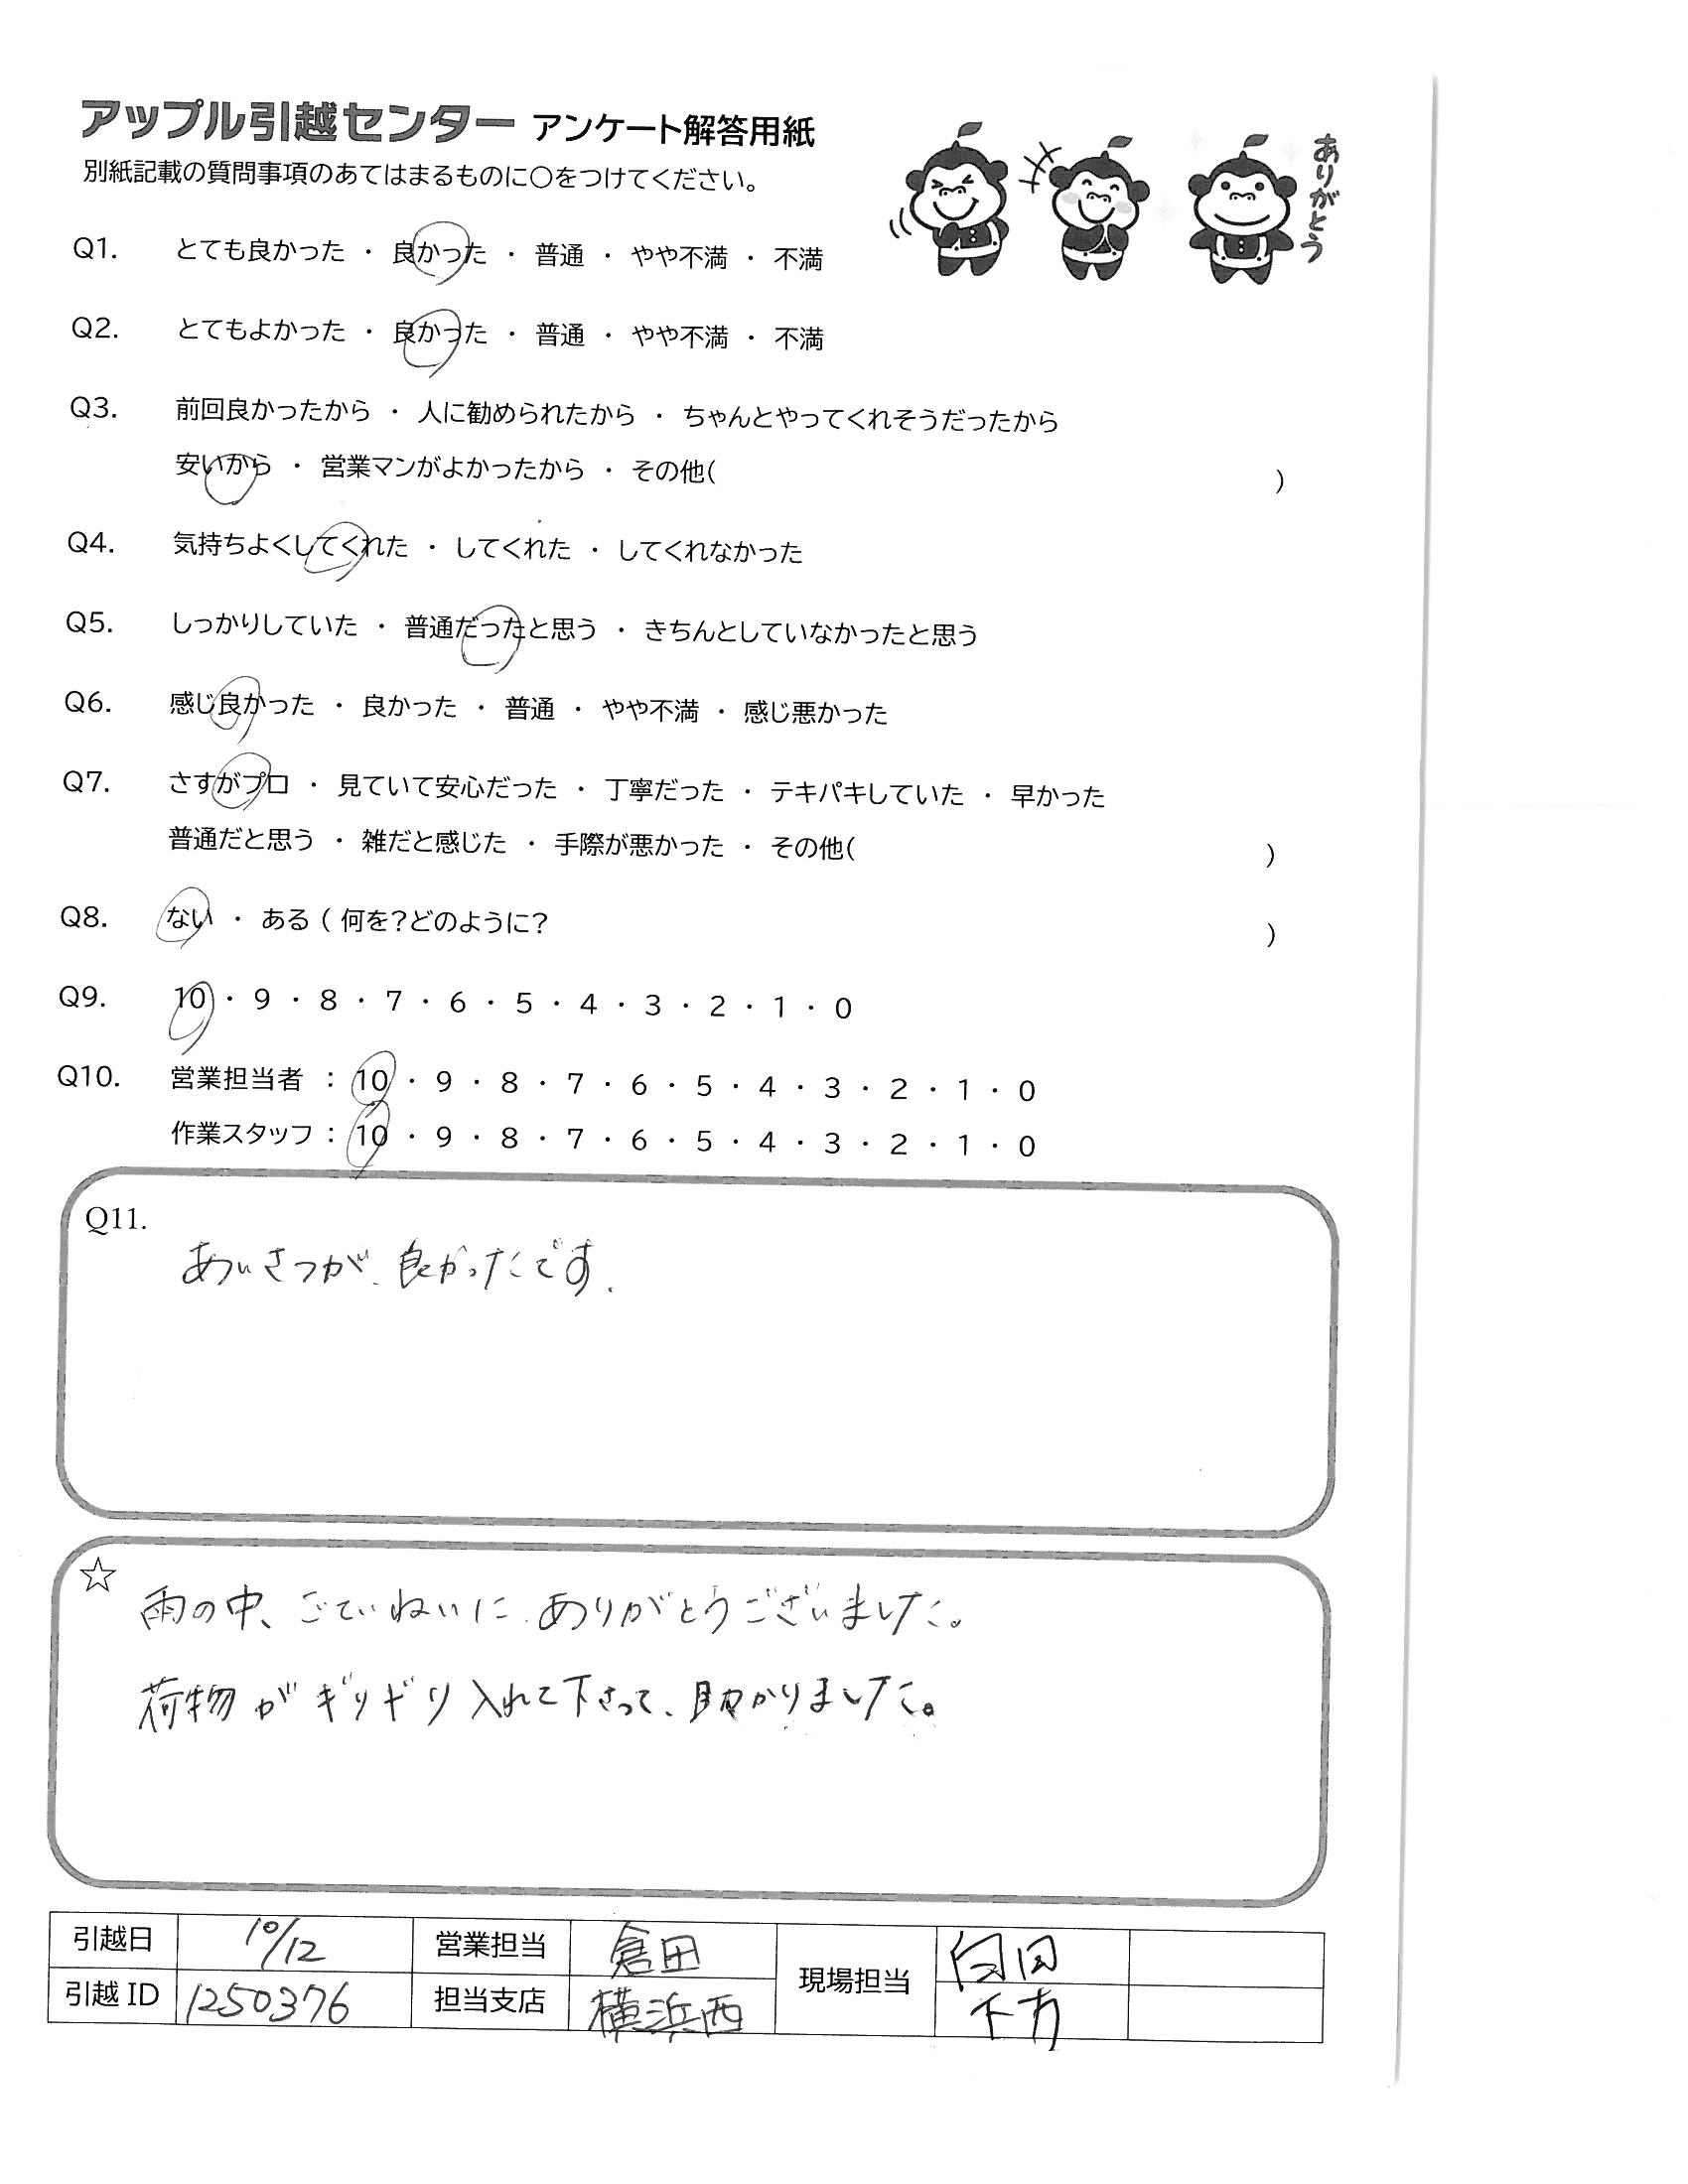 アップル引越センター アンケート解答用紙
別紙記載の質問事項のあてはまるものに○をつけてください。
ありがとう
Q1. とても良かった ・ 良かった ・ 普通 ・ やや不満 ・ 不満
Q2. とてもよかった ・ 良かった ・ 普通 ・ やや不満 ・ 不満
Q3. 前回良かったから ・ 人に勧められたから ・ ちゃんとやってくれそうだったから
安いから ・ 営業マンがよかったから ・ その他( )
Q4. 気持ちよくしてくれた ・ してくれた ・ してくれなかった
Q5. しっかりしていた ・ 普通だったと思う ・ きちんとしていなかったと思う
Q6. 感じ良かった ・ 良かった ・ 普通 ・ やや不満 ・ 感じ悪かった
Q7. さすがプロ ・ 見ていて安心だった ・ 丁寧だった ・ テキパキしていた ・ 早かった
普通だと思う ・ 雑だと感じた ・ 手際が悪かった ・ その他( )
Q8. ない ・ ある ( 何を?どのように? )
Q9. 10 ・ 9 ・ 8 ・ 7 ・ 6 ・ 5 ・ 4 ・ 3 ・ 2 ・ 1 ・ 0
Q10. 営業担当者 : 10 ・ 9 ・ 8 ・ 7 ・ 6 ・ 5 ・ 4 ・ 3 ・ 2 ・ 1 ・ 0
作業スタッフ : 10 ・ 9 ・ 8 ・ 7 ・ 6 ・ 5 ・ 4 ・ 3 ・ 2 ・ 1 ・ 0
Q11.
あいさつが、良かったです.
☆
雨の中、ごていねいに、ありがとうございました。
荷物がギリギリ入れて下さって、助かりました。
引越日 10/12 営業担当 倉田 現場担当
引越 ID 1250376 担当支店 横浜西 下方